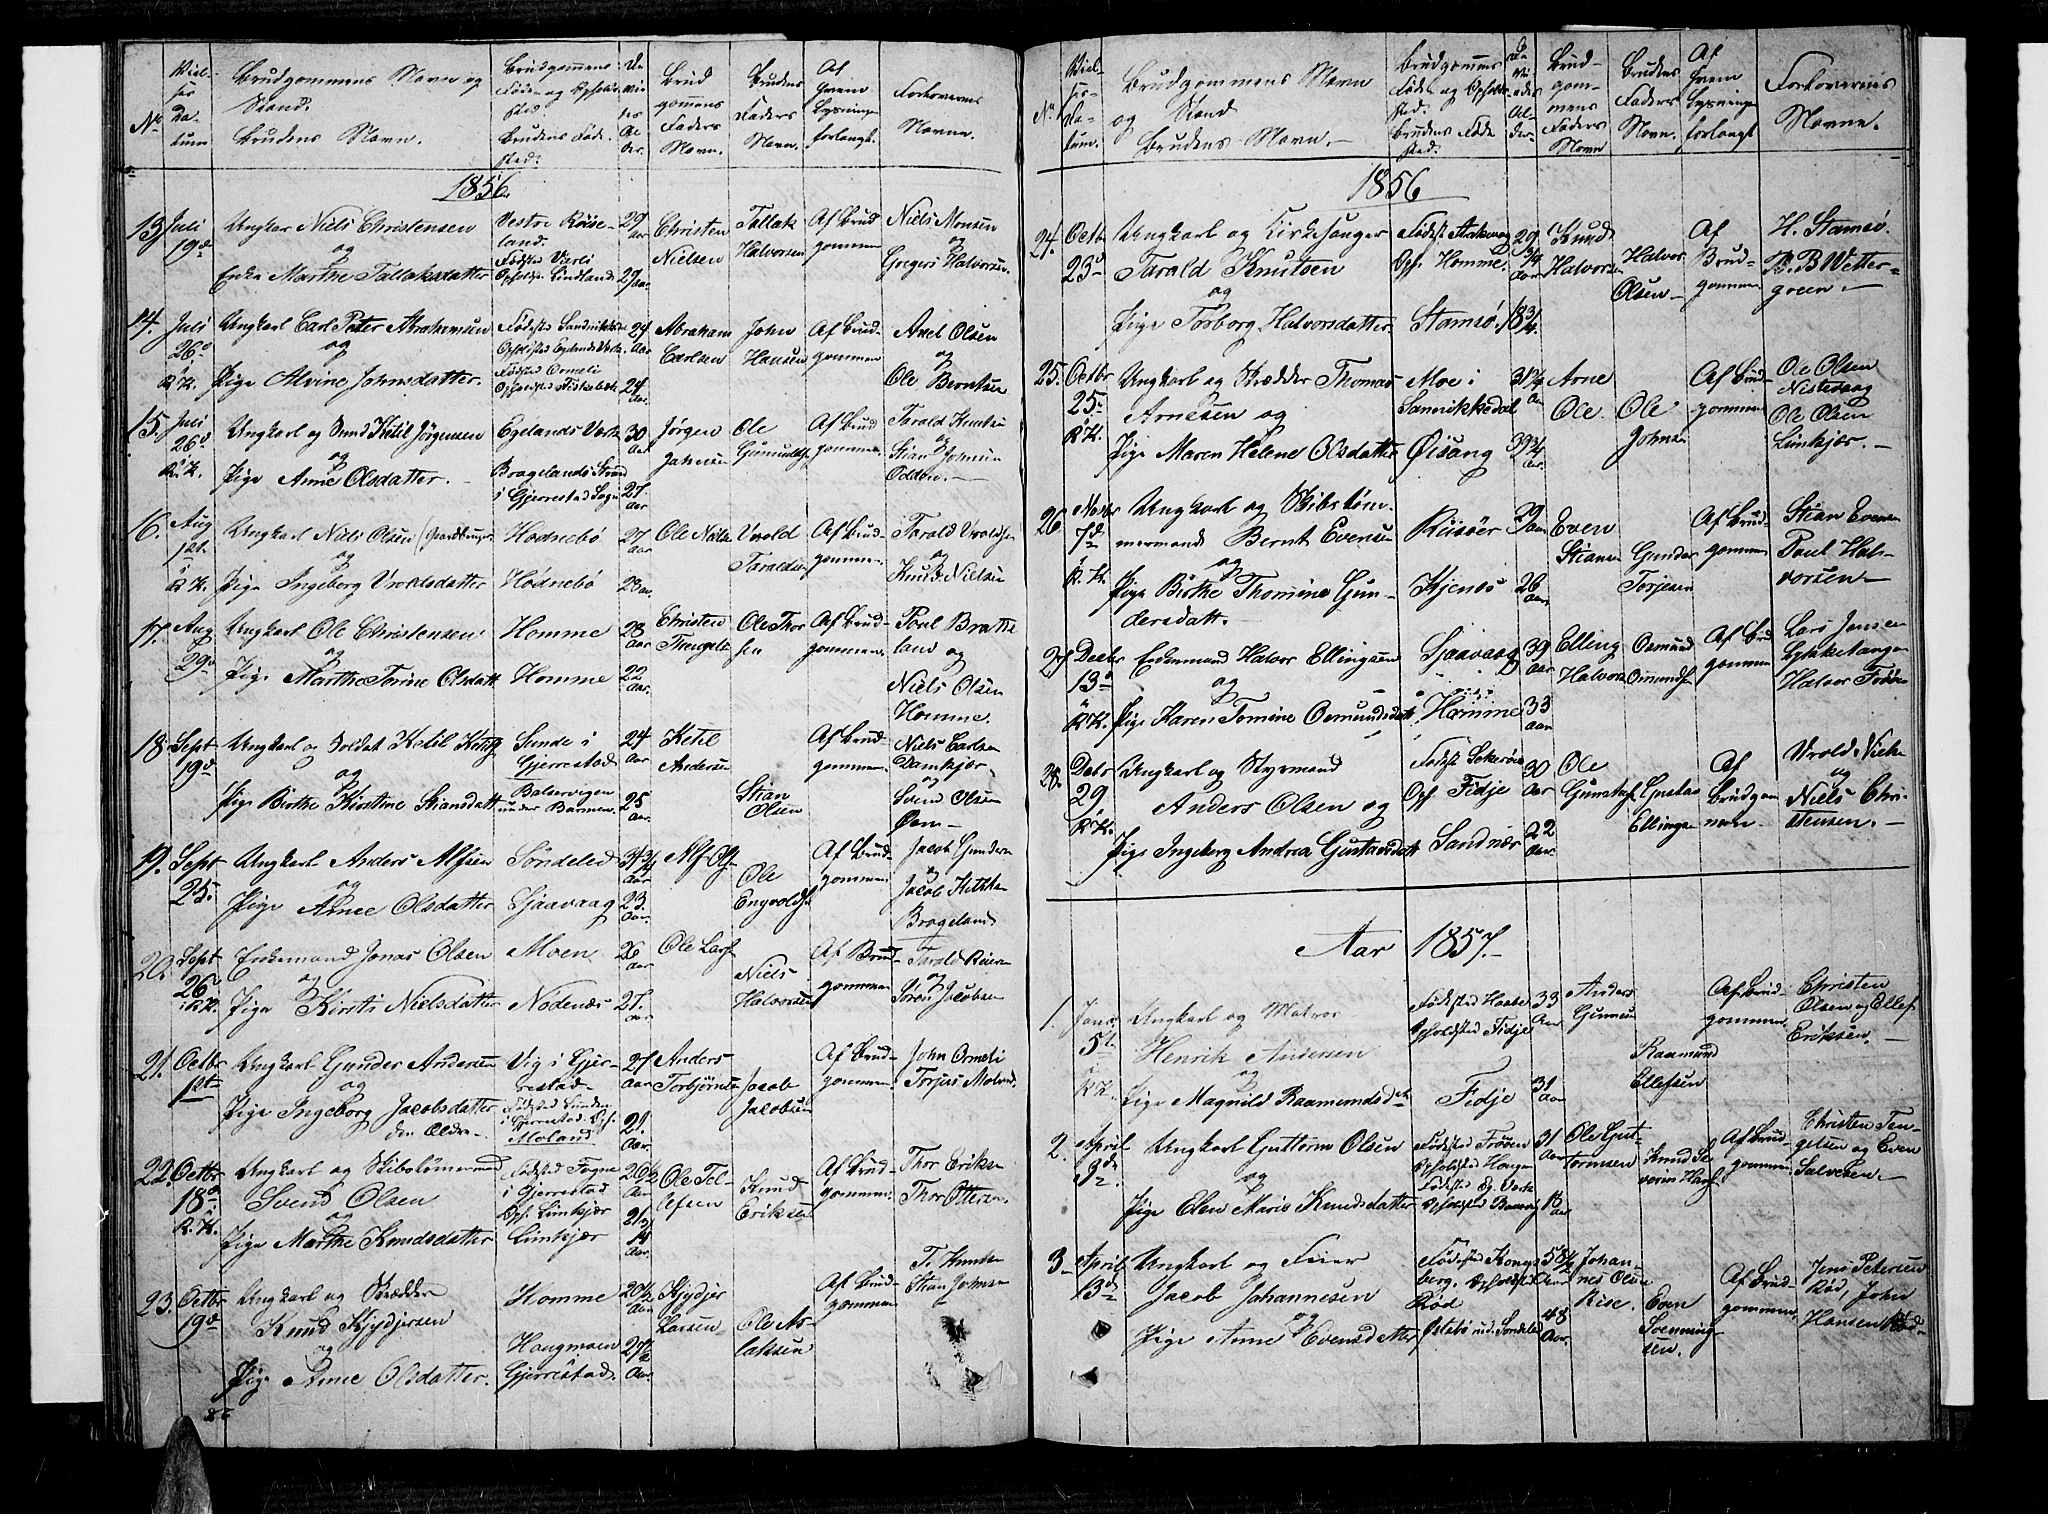 No
Vielses Datum
Brudgommens Navn og
Stand.
Brudens Navn.
Brudgommens
Føde og Opholds
sted.
Brudens Føde
sted.
Brud
gomens
Faders
Navn.
Brudens
Faders
Navn.
Af
hvem
Lysningen
forlangt.
Forlovernes
Navne.
1856.
13 Juli 19de Ungkar Niels Christensen
og
Enke Marthe Tallaksdatter
Vestre Røise-
land.
Fødested Vierli
Opholdst Lindland
29 Aar
27 Aar
Christen
Nielsen
Tallak
Halvorsen
Af Brud
gommen
Niels Monsen
og
Gregers Halvorsen
14. Juli 26d i R.K. Ungkarl Carl Peter Abrahamsen
og
Pige Alvine Johnsdatter.
24 Aar
Abraham
Carlsen
John
Hansen
Af Brud-
gommen
Axel Olsen
og
Ole Berntsen
15. Juli 26d i R.K. Ungkarl og Smed Ketil Jörgensen
og
Pige Anne Olsdatter.
Egelands Værk
Bragelands Strand
i Gjerrestad Sogn
30 Aar
27. Aar
Jörgen
Jahnsen
Ole
Gumundsen
Af Brud
gommen
Tarald Knutsen
og
Stian Johnsen
Odden.
16. Aug 1ste i R.K. Ungkarl Niels Olsen
og
Pige Ingeborg Vroldsdatter
Hødnebø
Hødnebö
27 Aar
23 Aar
Ole Niels
Vrold
Taraldsen
Af Brud-
gommen
Tarald Vroldsen
og
Knud Nielsen
17. Aug 29d Ungkarl Ole Christensen
og
Pige Marthe Torine Olsdatt
Homme
Homme
28 Aar
22 Aar.
Christen
Tengels
Ole Thor
sen
Af Brud-
gommen
Poul Bratte
land og
Niels Olsen
Homme.
18 Sept 19d Ungkarl og Soldat Ketil Ketils
og
Pige Birthe Kirstine Stiansdatt
Sunde i
Gjerrestad
under Barmen
24 Aar
25 Aar.
Ketil
Andersen
Stian
Olsen
Af Brud-
gommen
Niels Carlsen
Damkjær
og
Svend Olsen
Øen
19. Sept 25 Ungkarl Anders Alfsen
og
Pige Anne Olsdatter
Söndeled
Sjaavaag
23. Aar.
Alf Ols
Ole
Engvoldsen
Af Brud
gommen
Jacob Gundersen
og
Jacob Ketilsen
Brageland
20. Sept 26 i R.K. Enkemand Jonas Olsen
og
Pige Kirsti Nielsdatter
Moen.
Nødenæs
26 Aar
27. Aar
Ole Lars
Niels
Halvorsen
Af Brud-
gommen
Tarald Reiersen
og
Søren Jacobsen
21. Octbr 1st Ungkarl Gunder Andersen
og
Pige Ingeborg Jacobsdatter
den Ældre
Vig i Gjer-
restad
Moland
27 Aar
21. Aar.
Anders
Torbjörnsen
Jacob
Jacobsen
Af Brud-
gommen
John Ormeli
Torjus Moland
22. Octbr 18d i R.K. Ungkarl og Skibstömmermand
Svend Olsen
og
Pige Marthe Knudsdatter
Fødested Fogne
i Gjerrestad
Oph. Limkjær
Limkjær
26 1/2 Aar
Ole Tel-
lefsen
Knud
Eriksen
Af Brud-
gommen
Thor Eriksen
Thor Ottersen
23. Octbr 19d Ungkarl og Skrædder
Knud Kjydjersen
og
Pige Anne Olsdatter.
Homme
Haugmoen
Gjerrestad
20 1/2 Aar
27 1/2 Aar.
Kjydjer
Larsen
Ole As-
laksen
Af Brud-
gommen
T. Knudsen
Stian Johnsen
No
Vielses Datum.
Brudgommens Navn
og Stand
Brudens Navn.
Brudgommens
Føde og Opholds
sted.
Brudens Føde
sted.
Brud-
gom-
mens
Faders
Navn
Brudens
Faders
Navn.
Af
hvem
Lysningen
forlangt
Forlovernes
Navne.
1856
24. Octbr 23d Ungkarl og Kirkesanger
Tarald Knutsen
og
Pige Torborg Halvorsdatter
Oph. Homme.
Stamsö.
18 3/4
Knud
Halvorsen
Halvor
Olsen
Af
Brud-
gommen
H. Stamsö
B. B Wetter-
green.
25. Octbr 25 i R.K. Ungkarl og Skrædder Thomas
Arnesen og
Pige Maren Helene Olsdatter
Moe i
Sannikkedal
Øisang
39 3/4 Aar.
Arne
Ole
Ole
Johnsen
Af Brud-
gommen
Ole Olsen
Nistevaag
Ole Olsen
Limkjær.
26. Novbr 7d i R.K. Ungkarl og Skibstöm-
mermand Bernt Evensen
og
Pige Birthe Thomine Gun-
dersdatt.
Riisöer
Kjenes
29 Aar
26 Aar
Even
Stiansen
Gunder
Torjesen
Af Brud-
gommen
Stian Evensen
Paul Hal-
vorsen
27 Decbr 13d i R.K. Enkemand Halvor Ellingsen
og
Pige Karen Tomine Osmundsdatt.
Sjaavaag
Hömme
39 Aar
33 Aar
Elling
Halvors
Osmund
Osmundsen
Af Brud
gommen
Lars Jensen
Lykketangen
Halvor Frøen
28. Decbr 29 i R.K. Ungkarl og Styrmand
Anders Olsen og
Pige Ingeborg Andrea Gustavsdatt
Oph. Fidje
Sandnæs
30 Aar
22 Aar.
Ole
Gunstafs
Gustav
Ellingsen
Af
Brudgom
men
Vrold Niels
og
Niels Chri-
stensen.
Aar 1857.
1. Janr 5t i R.K. Ungkarl og Matros
Henrik Andersen
og
Pige Magnild Raamundsdtr
Opholdsted Fidje
Fidje
33 Aar
31 Aar
Anders
Gunnersen
Raamund
Ellefsen
Af Brud-
gommen
Christen
Olsen og Ellef
Eriksen.
2. April 3d Ungkarl Guttorm Olsen
og
Pige Elen Marie Knudsdatter
Fødested Frøen
31 Aar
18 Aar
Ole Gut-
tormsen
Knud Se-
verin Hans
Af Brud-
gommen
Christen Ten-
gelsen og Even
Salvesen.
3 April 13d Ungkarl og Feier
Jacob Johannesen
og
Pige Anne Evensdatter
Fødested Kongs-
berg, Opholdsted
Röd
Østebö und. Sondeled
58 1/2 Aar
48 Aar.
Johan-
nes Olsen
Rise.
Even
Svenning-
sen.
Af Brud-
gommen,
Jens Petersen
Röd, John
Hansen Röd